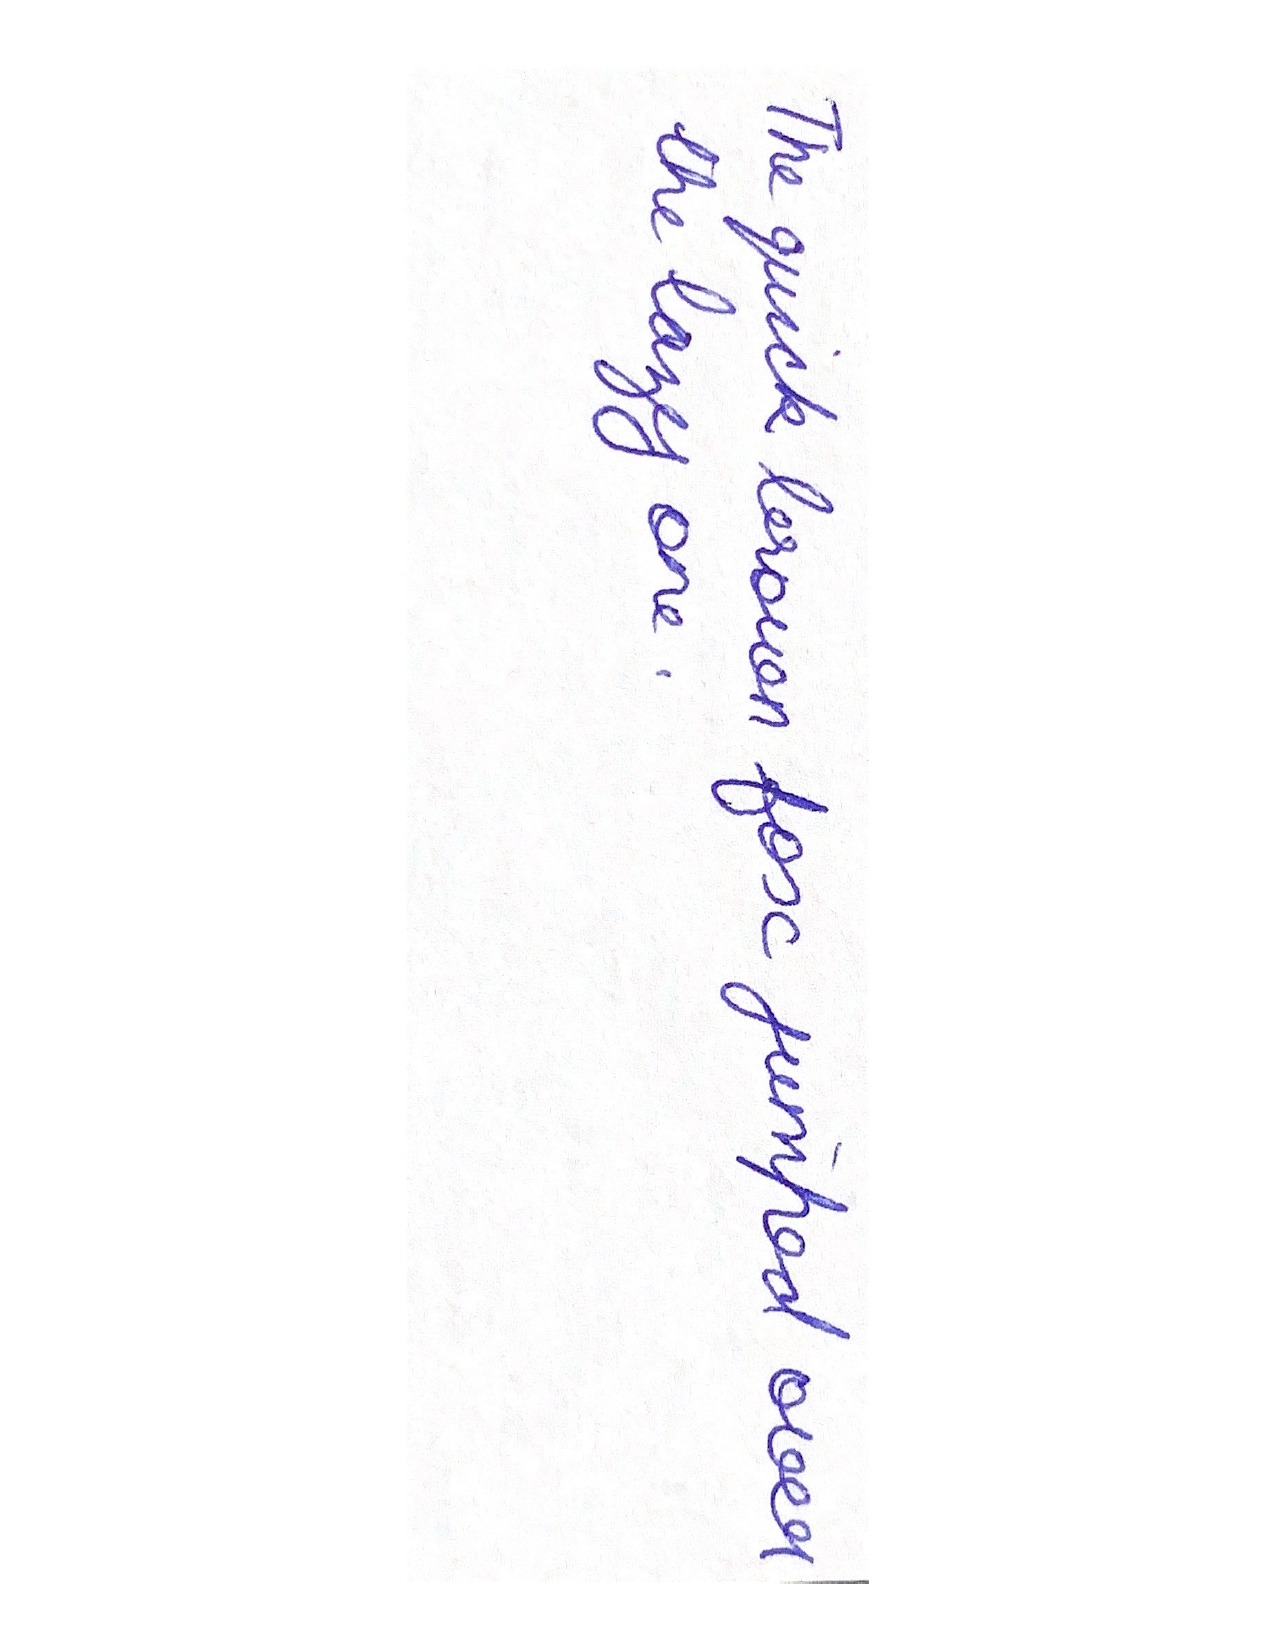 The quick brown fox jumpod over
the lazy one.